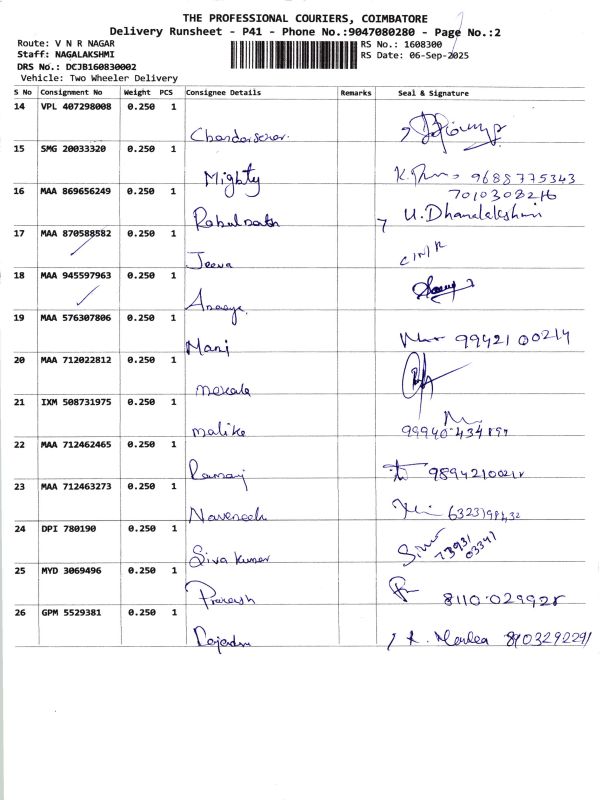 THE PROFESSIONAL COURIERS, COIMBATORE
Delivery Runsheet - P41 - Phone No.:9047080280 - Page No.:2
Route: V N R NAGAR
Staff: NAGALAKSHMI
DRS No.: DCJB160830002
Vehicle: Two Wheeler Delivery
RS No.: 1608300
RS Date: 06-Sep-2025
S No Consignment No Weight PCS Consignee Details Remarks Seal & Signature
14 VPL 407298008 0.250 1
Chandarsekar.
15 SMG 20033320 0.250 1
Mighty K. 9688775343
16 MAA 869656249 0.250 1 7010308216
U. Dhanalakshmi
17 MAA 870588582 0.250 1
Jeeva
18 MAA 945597963 0.250 1
19 MAA 576307806 0.250 1
Mani 99421 00214
20 MAA 712022812 0.250 1
mekala
21 IXM 508731975 0.250 1
malika
22 MAA 712462465 0.250 1
Ramaj 9894210028
23 MAA 712463273 0.250 1
24 DPI 780190 0.250 1
Siva kumar
25 MYD 3069496 0.250 1
Prakash 8110-029928
26 GPM 5529381 0.250 1
8903292291